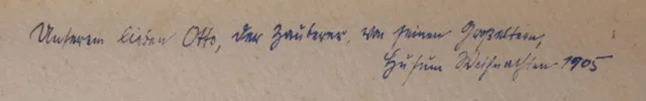 Unserem lieben Otto, der Zauberer, von seinen Großeltern,
Husum Weihnachten 1905